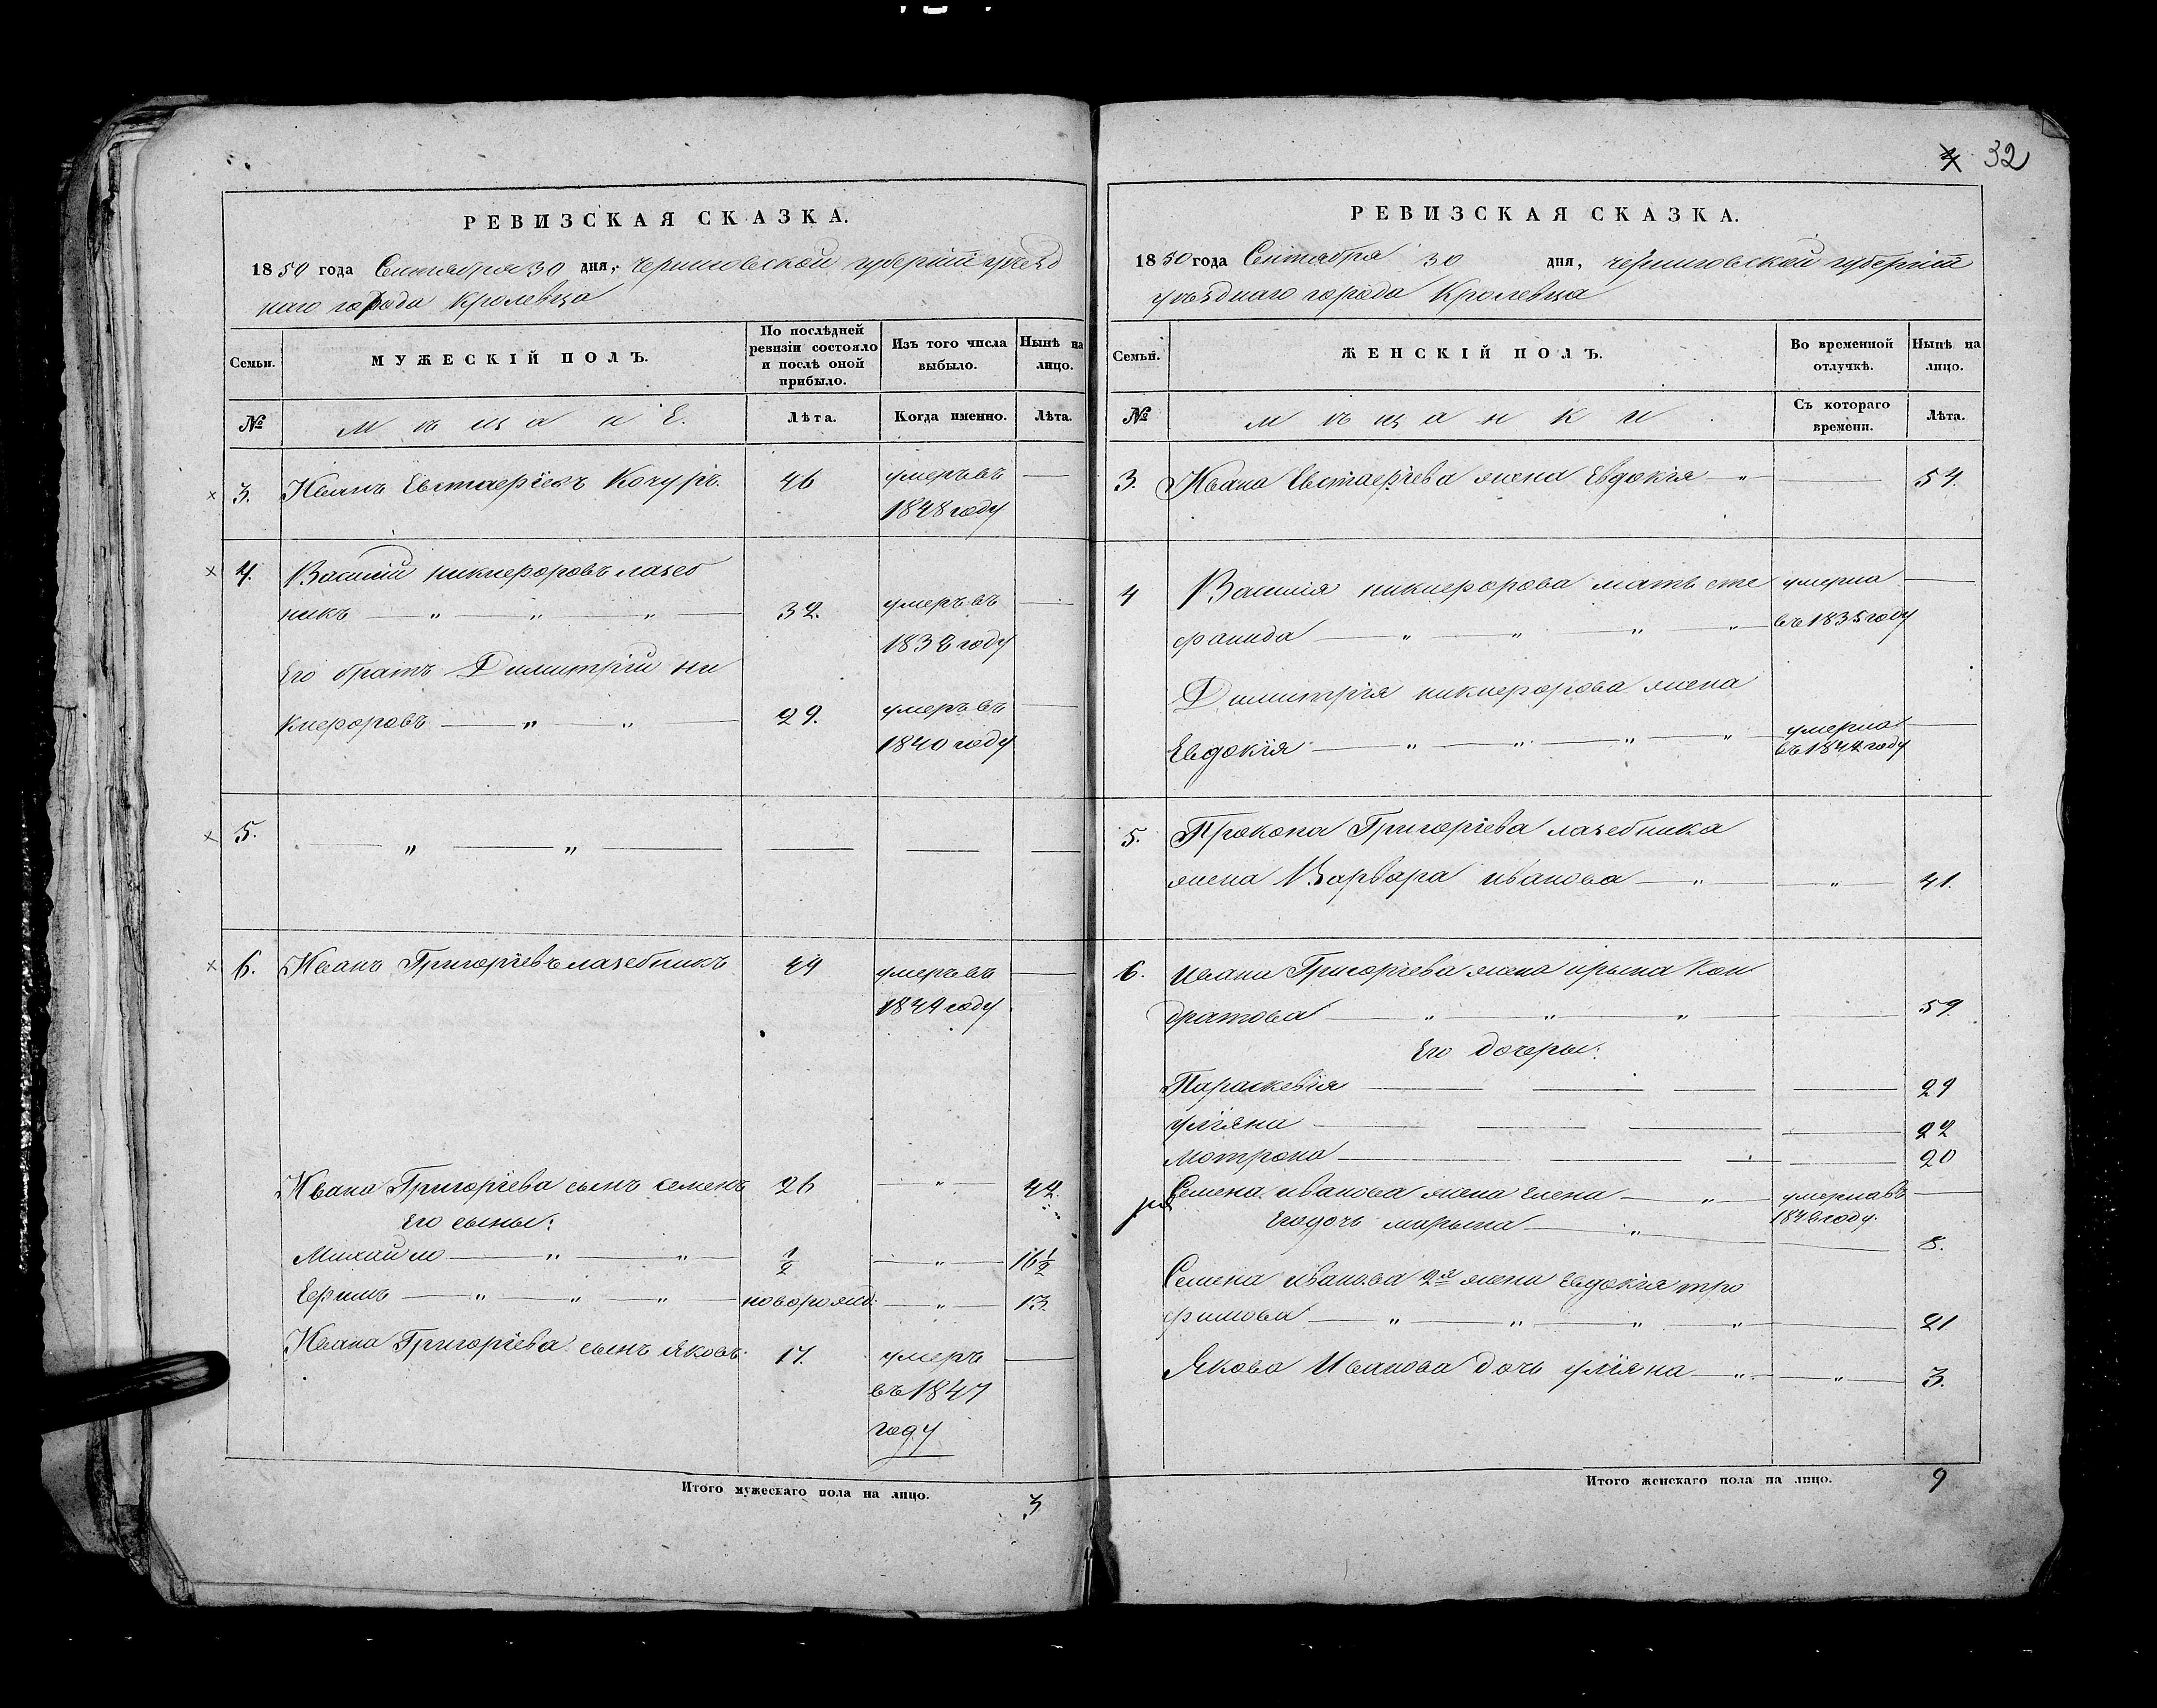 РЕВИЗСКАЯ СКАЗКА.
1850 года Сентября 30 дня, Черниговской губерніи уѣзд
наго города Кролевца
Семьи. МУЖЕСКІЙ ПОЛЪ. По послѣдней ревизіи состояло и послѣ оной прибыло. Изъ того числа выбыло. Нынѣ на лицо.
№ Мѣщане. Лѣта. Когда именно. Лѣта.
3. Иванъ Евстаерѣевъ Кочуръ. 46 умеръ въ —
1848 году
4. Василій никиеоровъ лазеб
никъ — " — " — " — 32. умеръ въ —
1838 году
Его братъ Димитрій ни
киеоровъ — " — " — 29. умеръ въ —
1840 году
5. — " — " — — — —
6. Иванъ Григоріевъ лазебникъ 49 умеръ въ —
1849 году
Ивана Григоріева сынъ семенъ 26 — " — 42.
Его сыны:
Михайло — " — " — 1/2 — " — 16 1/2
Ефимъ — " — " — " — новорожд: — " — 13.
Ивана Григоріева сынъ яковъ 17. умеръ —
въ 1847
году
Итого мужескаго пола на лицо. 3
32
РЕВИЗСКАЯ СКАЗКА.
1850 года Сентября 30 дня, Черниговской губерніи
уѣзднаго города Кролевца
Семьи. ЖЕНСКІЙ ПОЛЪ. Во временной отлучкѣ. Нынѣ на лицо.
№ Мѣщанки. Съ котораго времени. Лѣта.
3. Ивана жена Евдокія — " — 54.
4 Василія никиеорова мать сте умерла —
фанида — " — " — " — " — въ 1835 году
Димитрія никиеорова жена
Евдокія — " — " — " — " — умерла —
въ 1844 году
5. Прокопа Григоріева лазебника
жена Варвара иванова — " — " — 41.
6. Ивана Григоріева жена ирына Кон
дратова — " — " — " — 59.
Его дочеры:
Параскевія — 29
уліяна — 22
мотрона — 20
Семена иванова жена Елена — " — умерла въ —
Его дочь марына — " — году.
8.
Семена иванова 2я жена Евдокія тро
фимова — " — " — " — " — 21
Якова Иванова дочь уліяна — " — " — 3.
Итого женскаго пола на лицо. 9